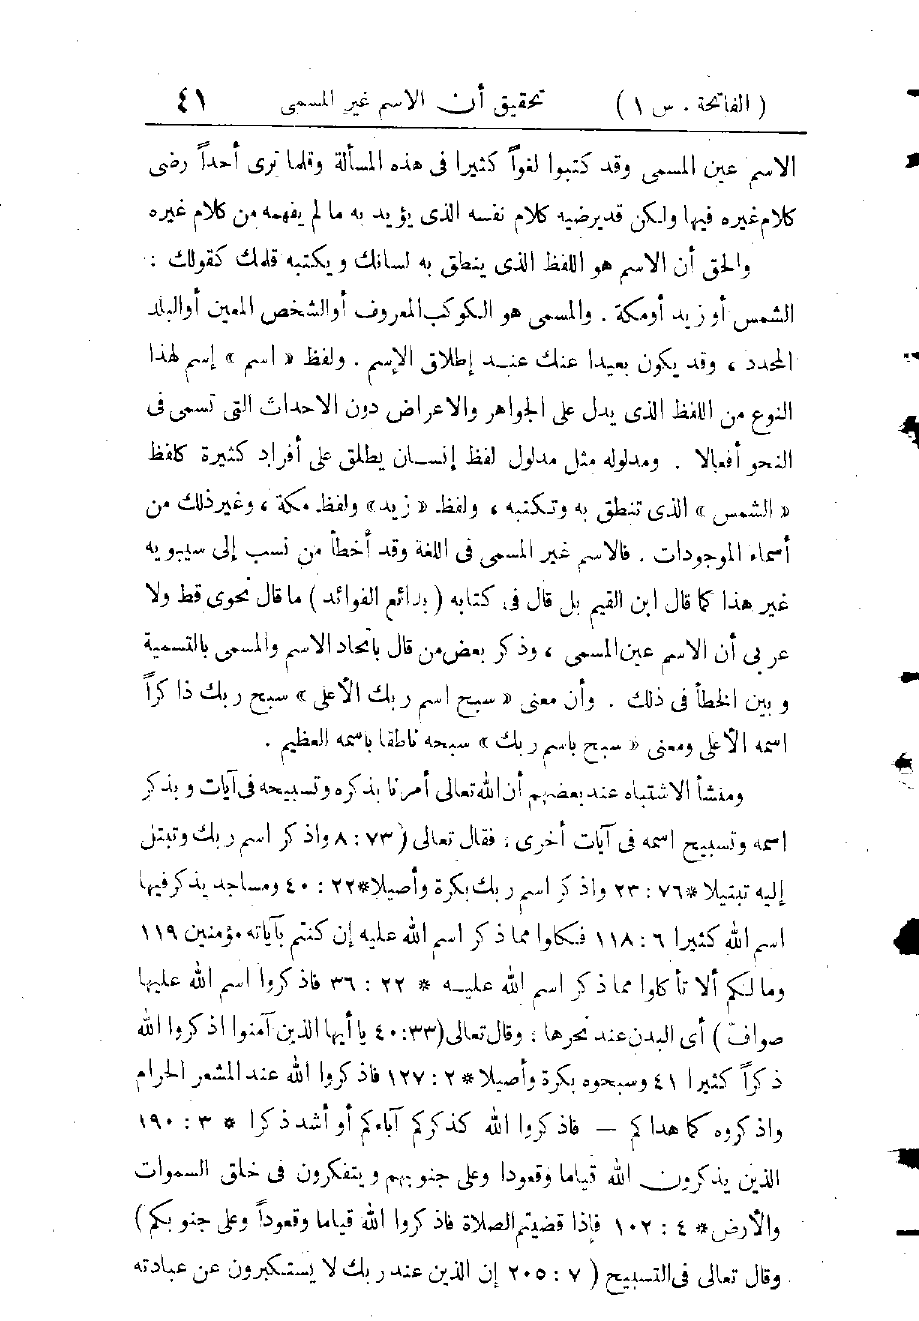 ( الفاتحة . س ١ ) تحقيق أن الاسم غير المسمى ٤١
الاسم عين المسمى وقد كتبوا لغواً كثيرا فى هذه المسألة وقلما ترى أحداً رضى
كلام غيره فيها ولكن قد يرضيه كلام نفسه الذى يؤيد به ما لم يفهمه من كلام غيره
والحق أن الاسم هو اللفظ الذى ينطق به لسانك ويكتبه قلمك كقولك :
الشمس أو زيد أو مكة . والمسمى هو الكوكب المعروف أو الشخص المعين أو البلد
المحدد ، وقد يكون بعيدا عنك عند إطلاق الإسم . ولفظ « اسم » إسم لهذا
النوع من اللفظ الذى يدل على الجواهر والاعراض دون الاحداث التى تسمى فى
النحو أفعالا . ومدلوله مثل مدلول لفظ إنسان يطلق على أفراد كثيرة كلفظ
« الشمس » الذى تنطق به وتكتبه ، ولفظ « زيد » ولفظ مكة ، وغير ذلك من
أسماء الموجودات . فالاسم غير المسمى فى اللغة وقد أخطأ من نسب إلى سيبويه
غير هذا كما قال ابن القيم بل قال فى كتابه ( بدائع الفوائد ) ما قال نحوى قط ولا
عربى أن الاسم عين المسمى ، وذكر بعض من قال باتحاد الاسم والمسمى بالتسمية
وبين الخطأ فى ذلك . وأن معنى « سبح اسم ربك الأعلى » سبح ربك ذاكراً
اسمه الأعلى ومعنى « سبح باسم ربك » سبحه ناطقا باسمه العظيم .
ومنشأ الاشتباه عند بعضهم أن الله تعالى أمرنا بذكره وتسبيحه فى آيات وبذكر
اسمه وتسبيح اسمه فى آيات أخرى ، فقال تعالى ( ٧٣ : ٨ واذكر اسم ربك وتبتل
إليه تبتيلا * ٧٦ : ٢٣ واذكر اسم ربك بكرة وأصيلا * ٢٢ : ٤٠ ومساجد يذكر فيها
اسم الله كثيرا ٦ : ١١٨ فكلوا مما ذكر اسم الله عليه إن كنتم بآياته مؤمنين ١١٩
وما لكم ألا تأكلوا مما ذكر اسم الله عليه * ٢٢ : ٣٦ فاذكروا اسم الله عليها
صوافّ ) أى البدن عند نحرها ، وقال تعالى ( ٣٣ : ٤٠ يا أيها الذين آمنوا اذكروا الله
ذكراً كثيرا ٤١ وسبحوه بكرة وأصيلا * ٢ : ١٢٧ فاذكروا الله عند المشعر الحرام
واذكروه كما هداكم — فاذكروا الله كذكركم آباءكم أو أشد ذكرا * ٣ : ١٩٠
الذين يذكرون الله قياما وقعودا وعلى جنوبهم ويتفكرون فى خلق السموات
والأرض * ٤ : ١٠٢ فإذا قضيتم الصلاة فاذكروا الله قياما وقعوداً وعلى جنوبكم )
وقال تعالى فى التسبيح ( ٧ : ٢٠٥ إن الذين عند ربك لا يستكبرون عن عبادته